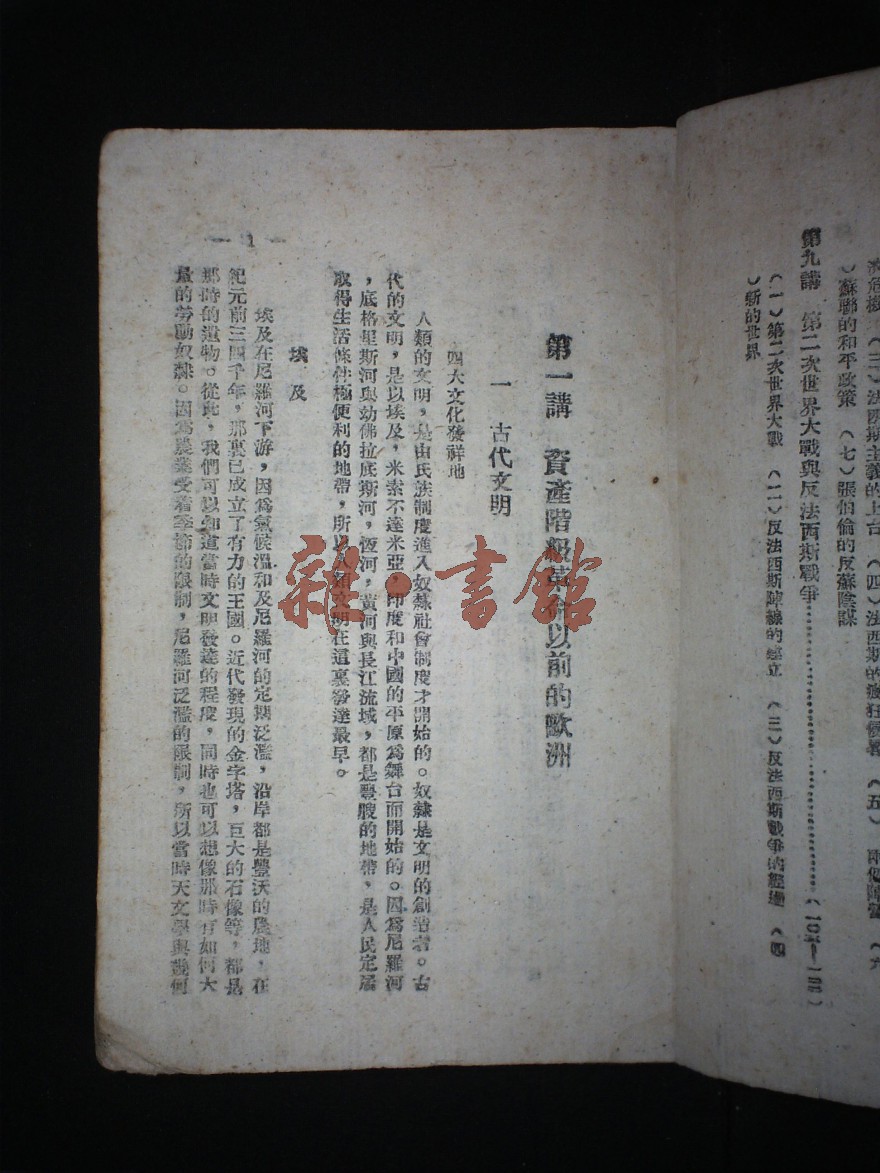 濟危機 （三）法西斯主義的上台 （四）法西斯的瘋狂侵署 （五） 兩個陣營 （六
）蘇聯的和平政策 （七）張伯倫的反蘇陰謀
第九講 第二次世界大戰與反法西斯戰爭
（一）第二次世界大戰 （二）反法西斯陣線的建立 （三）反法西斯戰爭的經過 （四
）新的世界
第一講 資產階級革命以前的歐洲
一 古代文明
四大文化發祥地
人類的文明，是由氏族制度進入奴隸社會制度才開始的。奴隸是文明的創造者。古
代的文明，是以埃及，米索不達米亞，印度和中國的平原為舞台而開始的。因為尼羅河
，底格里斯河與幼佛拉底斯河，恆河，黃河與長江流域，都是豐腴的地帶，是人民定居
取得生活條件極便利的地帶，所以人類文明在這裏發達最早。
埃及
埃及在尼羅河下游，因為氣候溫和及尼羅河的定期泛濫，沿岸都是豐沃的農地，在
紀元前三四千年，那裏已成立了有力的王國。近代發現的金字塔，巨大的石像等，都是
那時的遺物。從此，我們可以知道當時文明發達的程度，同時也可以想像那時有如何大
量的勞動奴隸。因為農業受着季節的限制，尼羅河泛濫的限制，所以當時天文學與幾何
— 1 —
雜·書館